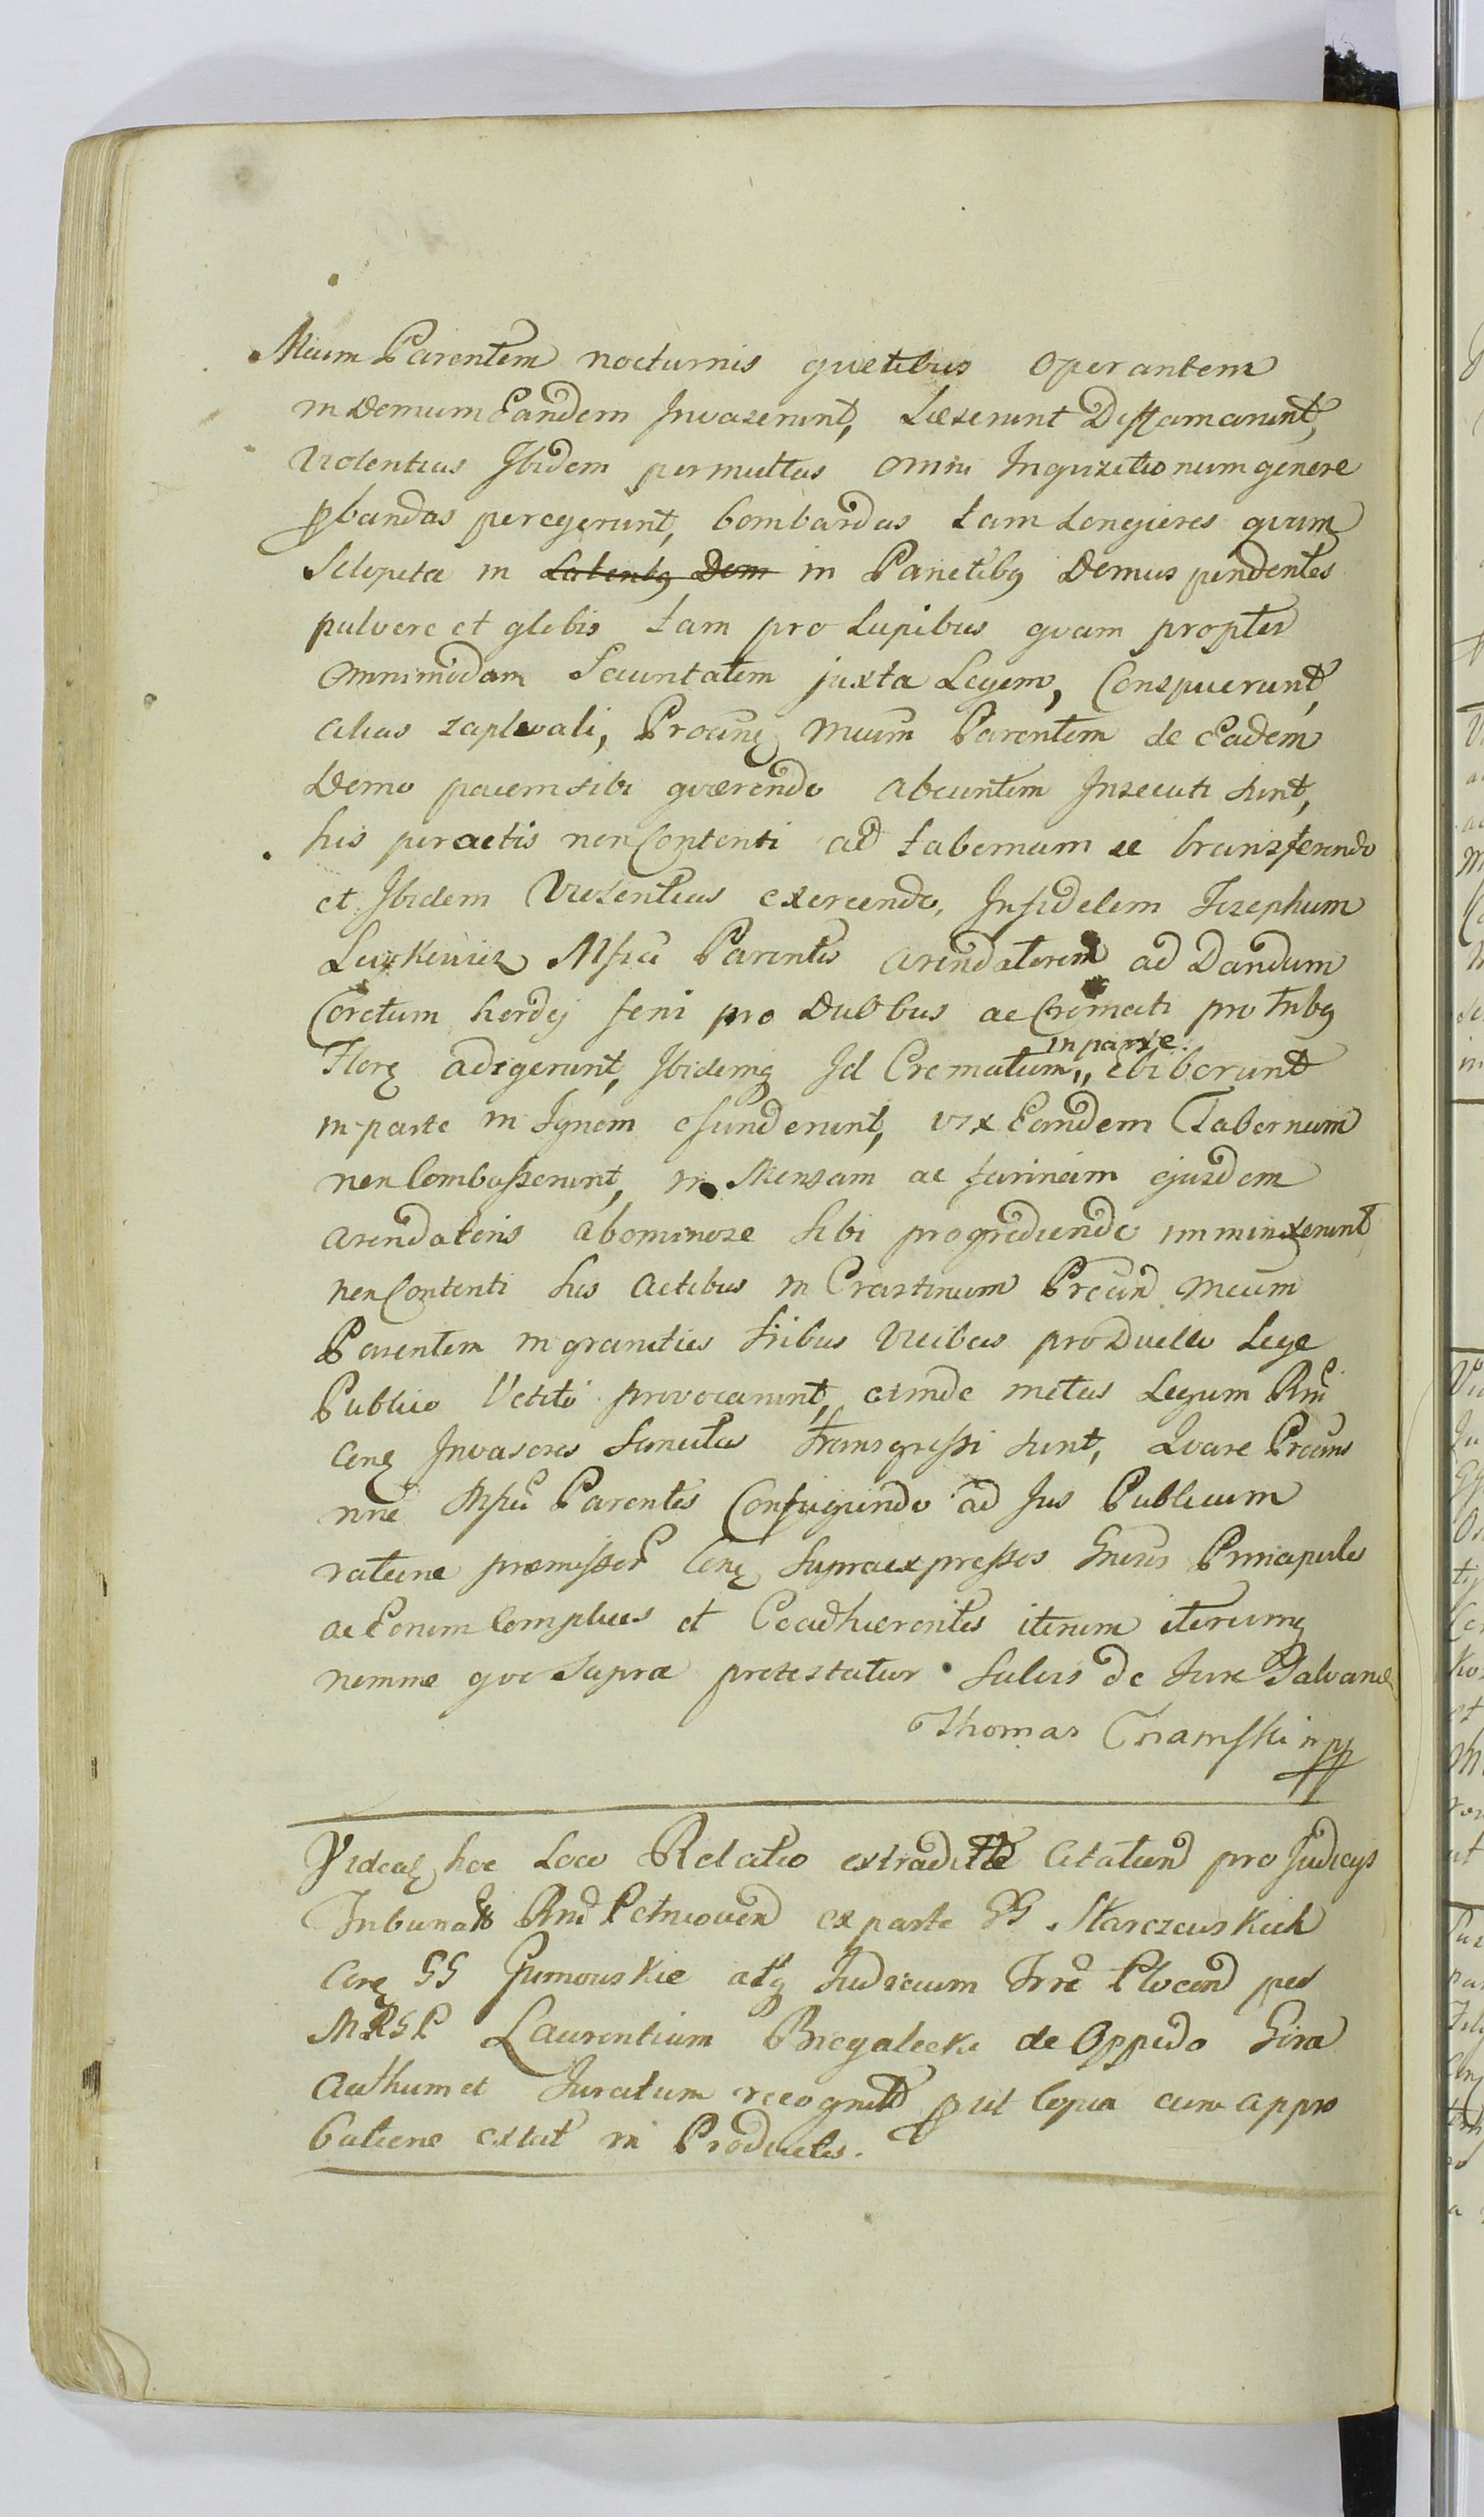 Meum Parentem nocturnis quietibus operantem
in Domum Eandem Invaserunt, Læserunt Diffamarunt,
violentias Ibidem permultas omni Inquisitionum genere
pbandas peregerunt, bombardas tam Longiores quam
Sclopeta in Latentbq Dom in Parietibq Domus pendentes
pulvere et globis tam pro Lupibus quam propter
omnimodam Securitatem juxta Legem, Conspuerunt,
alias zaplwali, Procumq Meum Parentem de Eadem
Domo pacem sibi quærendo abeuntem Insecuti sunt,
his peractis non Contenti ad tabernam se transferendo
et Ibidem Violentias exercendo, Infidelem Josephum
Lewkowicz Mfici Parentis arendatorem ad Dandum
Coretum hordei feni pro Duobus ac Cremati pro Tribq
Florq adegerunt, Ibidemq Id Crematum,, in parte ebiberunt
in parte in Ignem efunderunt, vix Eandem Tabernam
non Combusserunt, in Mensam ac farinam ejusdem
arendatoris abominose sibi progrediendo imminxerunt
non Contenti his actibus in Crastinum Procum Meum
Parentem in granities tribus vicibus pro Duello Lege
Publico Vetito provocarunt, et inde metas Legum Rni
Cenq Invasores sancitas transgressi sunt, Quare Procuns
nne Mfici Parentis Confugiendo ad Jus Publicum
ratione præmissor Cenq supraexpressos Gnosos Principales
ac Eorum Complices et Coadhærentes iterum iterumq
nomine quo supra protestatur. Salvis de Jure Salvand
Thomas Tnamski mpp
Videaq hoc Loco Relatio extraditæ Citation pro Judicijs
Tribunalb Rni Petricovien ex parte GG Starczewskich
Cenq GG Gumowskie atq Judicium Trre Plocen per
MRSP Laurentium Biegalecki de Oppido Gira
authum et Juratum recognit put Copia cum appro
batione extat in Productis.